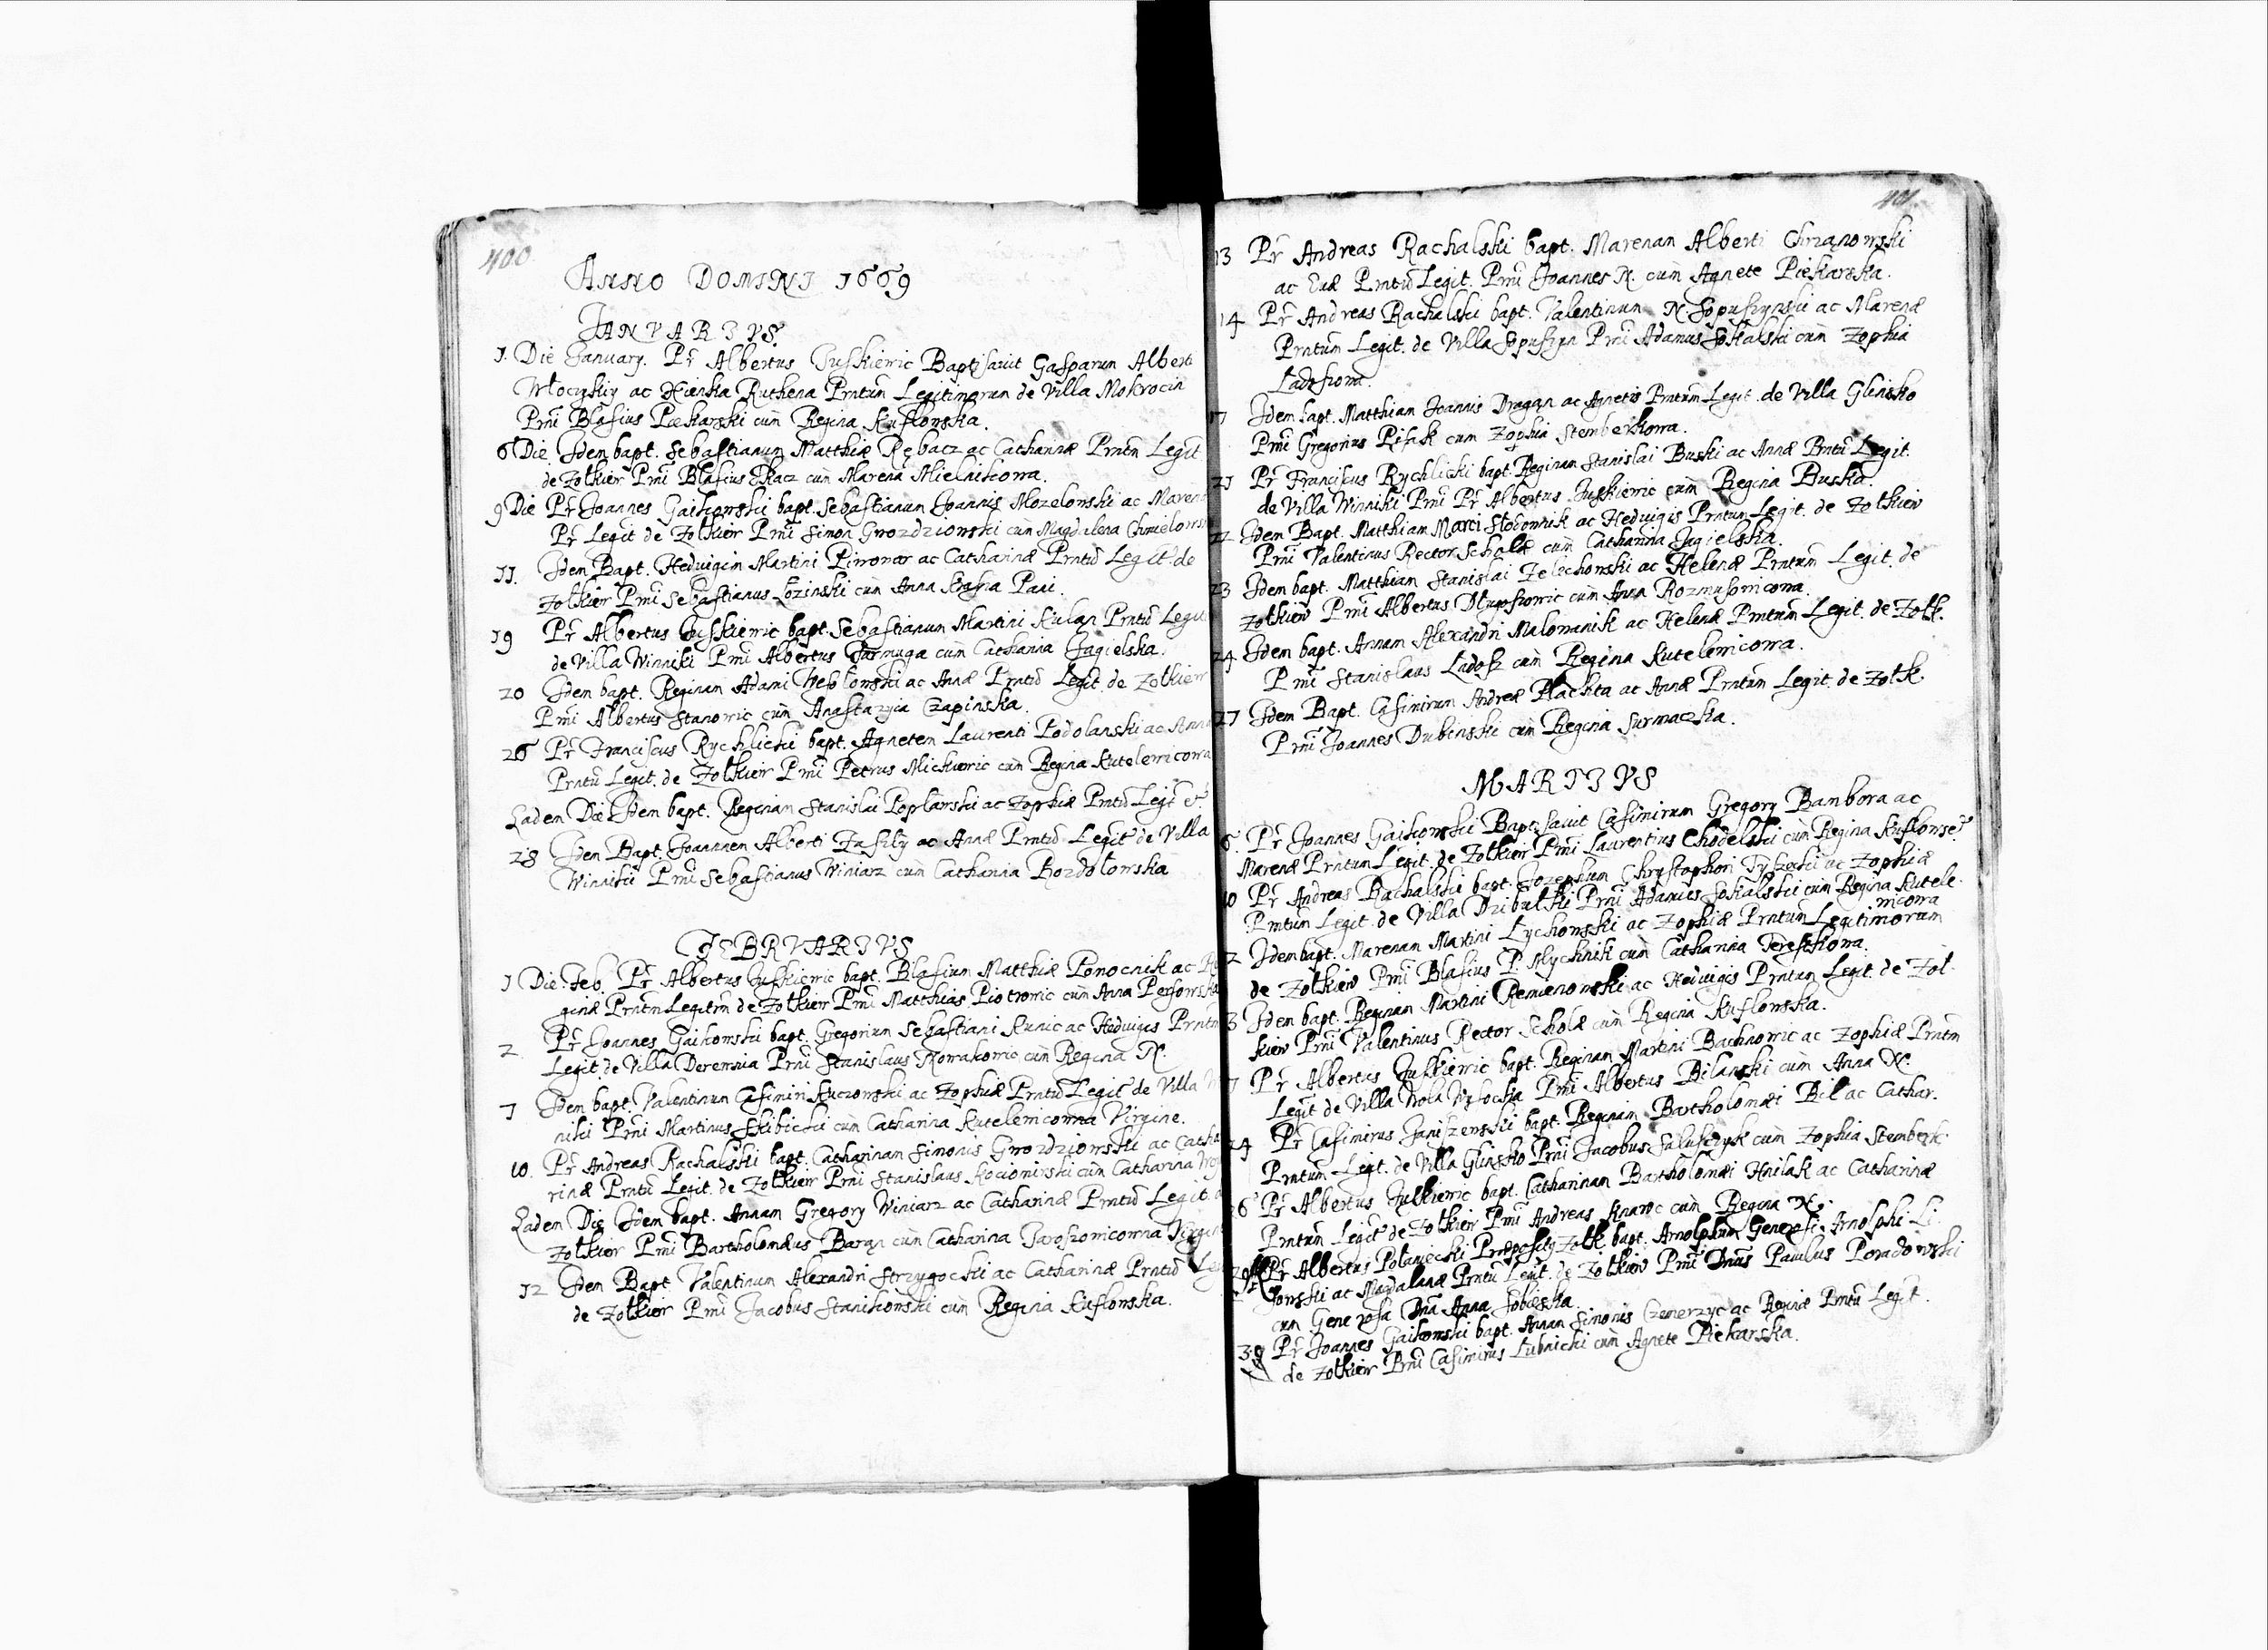 400
ANNO DOMINI 1669
JANVARIVS.
1. Die January. Pr Albertus Juskiewic Baptisavit Gasparum Alberti
Włocyskiy ac Hienska Ruthena Prntum Legitimorum de Villa Mokrocin
Prni Blasius Piekarski cum Regina Kuflowska.
6 Die Idem bapt. Sebastianum Matthiæ Rębacz ac Catharinæ Prntm Legit
de Zołkiew Prni Blasius Tkacz cum Marena Mielnikowa.
9 Die Pr Joannes Gaikowski bapt. Sebastianum Joannis Mozelowski ac Maren
Pr Legit de Zołkiew Prni Simon Gwozdziowski cum Magdalena Chmielows
11. Idem Bapt. Hedvigim Martini Piwowar ac Catharinæ Prntu Legit. de
Zołkiew Prni Sebastianus Łozinski cum Anna
19 Pr Albertus Juskiewic bapt. Sebastianum Martini Kulan Prntu Legit
de Villa Winniki Prni Albertus Jarmuga cum Catharina Jagielska.
20 Idem bapt. Reginam Adami ac Annæ Prntu Legit. de Zolkiew
Prni Albertus Stanowic cum Anastazyia Czapinska.
26 Pr Franciscus Rychlicki bapt. Agnetem Laurenti Podolanski ac Anna
Prntu Legit. de Zołkiew Prni Petrus Mickiewic cum Regina Kutelewicowa
Eadem Die Idem bapt. Reginam Stanislai Poplawski ac Zophiæ Prntu Legit
28 Idem Bapt. Joannem Alberti ac Annæ Prntu Legit de Villa
Winniki Prni Sebastianus Winiarz cum Catharina Bozdołowska
FEBRVARIVS
1 Die Feb. Pr Albertus Juskiewic bapt. Blasium Matthiæ Pomocnik ac Re
ginæ Prntm Legitm de Zołkiew Prni Matthias Piotrowic cum Anna
2 Pr Joannes Gaikowski bapt. Gregorium Sebastiani Kunic ac Hedvigis Prntm
Legit. de Villa Derewnia Prni Stanislaus Nowakowic cum Regina N.
7 Idem bapt. Valentinum Casimiri Kuczowski ac Zophiæ Prntu Legit de Villa
niki Prni Martinus Skibicki cum Catharina Kutelewicowna Virgine.
10. Pr Andreas Rachalski bapt. Catharinam Simonis Gwozdziowski ac Catha
rinæ Prntu Legit. de Zołkiew Prni Stanislaus Kociomirski cum Catharina
Eadem Die Idem bapt. Annam Gregory Winiarz ac Catharinæ Prntu Legit. d
Zołkiew Prni Bartholomæus Baran cum Catharina Jaroszowicowna Virgin
12 Idem Bapt. Valentinum Alexandri Strzygocki ac Catharinæ Prntu Le
de Zołkiew Prni Jacobus Stanikowski cum Regina Kuflowska.
401
13 Pr Andreas Rachalski bapt. Marenam Alberti Chrzanowski
ac Evæ Prntu Legit. Prni Joannes N. cum Agnete Piekarska.
14 Pr Andreas Rachalski bapt. Valentinum N. Sopuszynski ac Marenæ
Prntum Legit. de Villa Sopuszyn Prni Adamus Sokalski cum Zophia
Ladoszowa.
17 Idem bapt. Matthiam Joannis Dragan ac Agnetis Prntum Legit. de Villa Glinsko
Prni Gregorius Pisak cum Zophia Stemberkowa.
21 Pr Franciscus Rychlicki bapt. Reginam Stanislai Buski ac Annæ Prntu Legit.
de Villa Winniki Prni Pr Albertus Juskiewic cum Regina Buska.
22 Idem Bapt. Matthiam Marci Słodownik ac Hedvigis Prntum Legit. de Zołkiew
Prni Valentinus Rector Scholæ cum Catharina Jagielska.
23 Idem bapt. Matthiam Stanislai Zelechowski ac Helenæ Prntum Legit. de
Zołkiew Prni Albertus Długoszowic cum Anna Rozmusowicowa.
24 Idem bapt. Annam Alexandri Malowanik ac Helenæ Prntum Legit. de Zołk.
Prni Stanislaus Ladosz cum Regina Kutelewicowa.
27 Idem Bapt. Casimirum Andreæ Płachta ac Annæ Prntum Legit. de Zołk.
Prni Joannes Dubinski cum Regina Surmaczka.
MARTIVS
6. Pr Joannes Gaikowski Baptisavit Casimirum Gregory Bambora ac
Marenæ Prntum Legit. de Zołkiew Prni Laurentius Chodelski cum Regina
10 Pr Andreas Rachalski bapt. Jozephum Chrystophori Tyszecki ac Zophiæ
Prntum Legit. de Villa Dzibułki Prni Adamus Sokalski cum Regina Kutele
wicowa
2 Idem bapt. Marenam Martini Lychowski ac Zophiæ Prntum Legitimorum
de Zołkiew Prni Blasius P. Mychnik cum Catharina Tereszkowa.
3 Idem bapt. Reginam Martini Remienowski ac Hedvigis Prntum Legit. de Zoł-
kiew Prni Valentinus Rector Scholæ cum Regina Kuflowska.
7 Pr Albertus Juskiewic bapt. Reginam Martini Bachnowic ac Zophiæ Prntm
Legit de Villa Wola Wysocka Prni Albertus Bilanski cum Anna N.
24 Pr Casimirus Janiszewski bapt. Reginam Bartholomæi Bil ac Cathar.
Prntum Legit. de Villa Glinsko Prni Jacobus Falusczysk cum Zophia Stemberk.
26 Pr Albertus Juskiewic bapt. Catharinam Bartholomæi Hnilak ac Catharinæ
Prntum Legit de Zołkiew Prni Andreas cum Regina N.
Pr Albertus Polanecki Præpositg Zołk. bapt. Arnolphum Generosi Arnolphi Li-
sowski ac Magdalenæ Prntu Legit. de Zołkiew Prni Dnus Paulus Poradowski
cum Generosa Dna Anna Sobieska.
30 Pr Joannes Gaikowski bapt. Annam Simonis Czemerzyc ac Reginæ Prntu Legit.
de Zołkiew Prni Casimirus Lubnicki cum Agnete Piekarska.